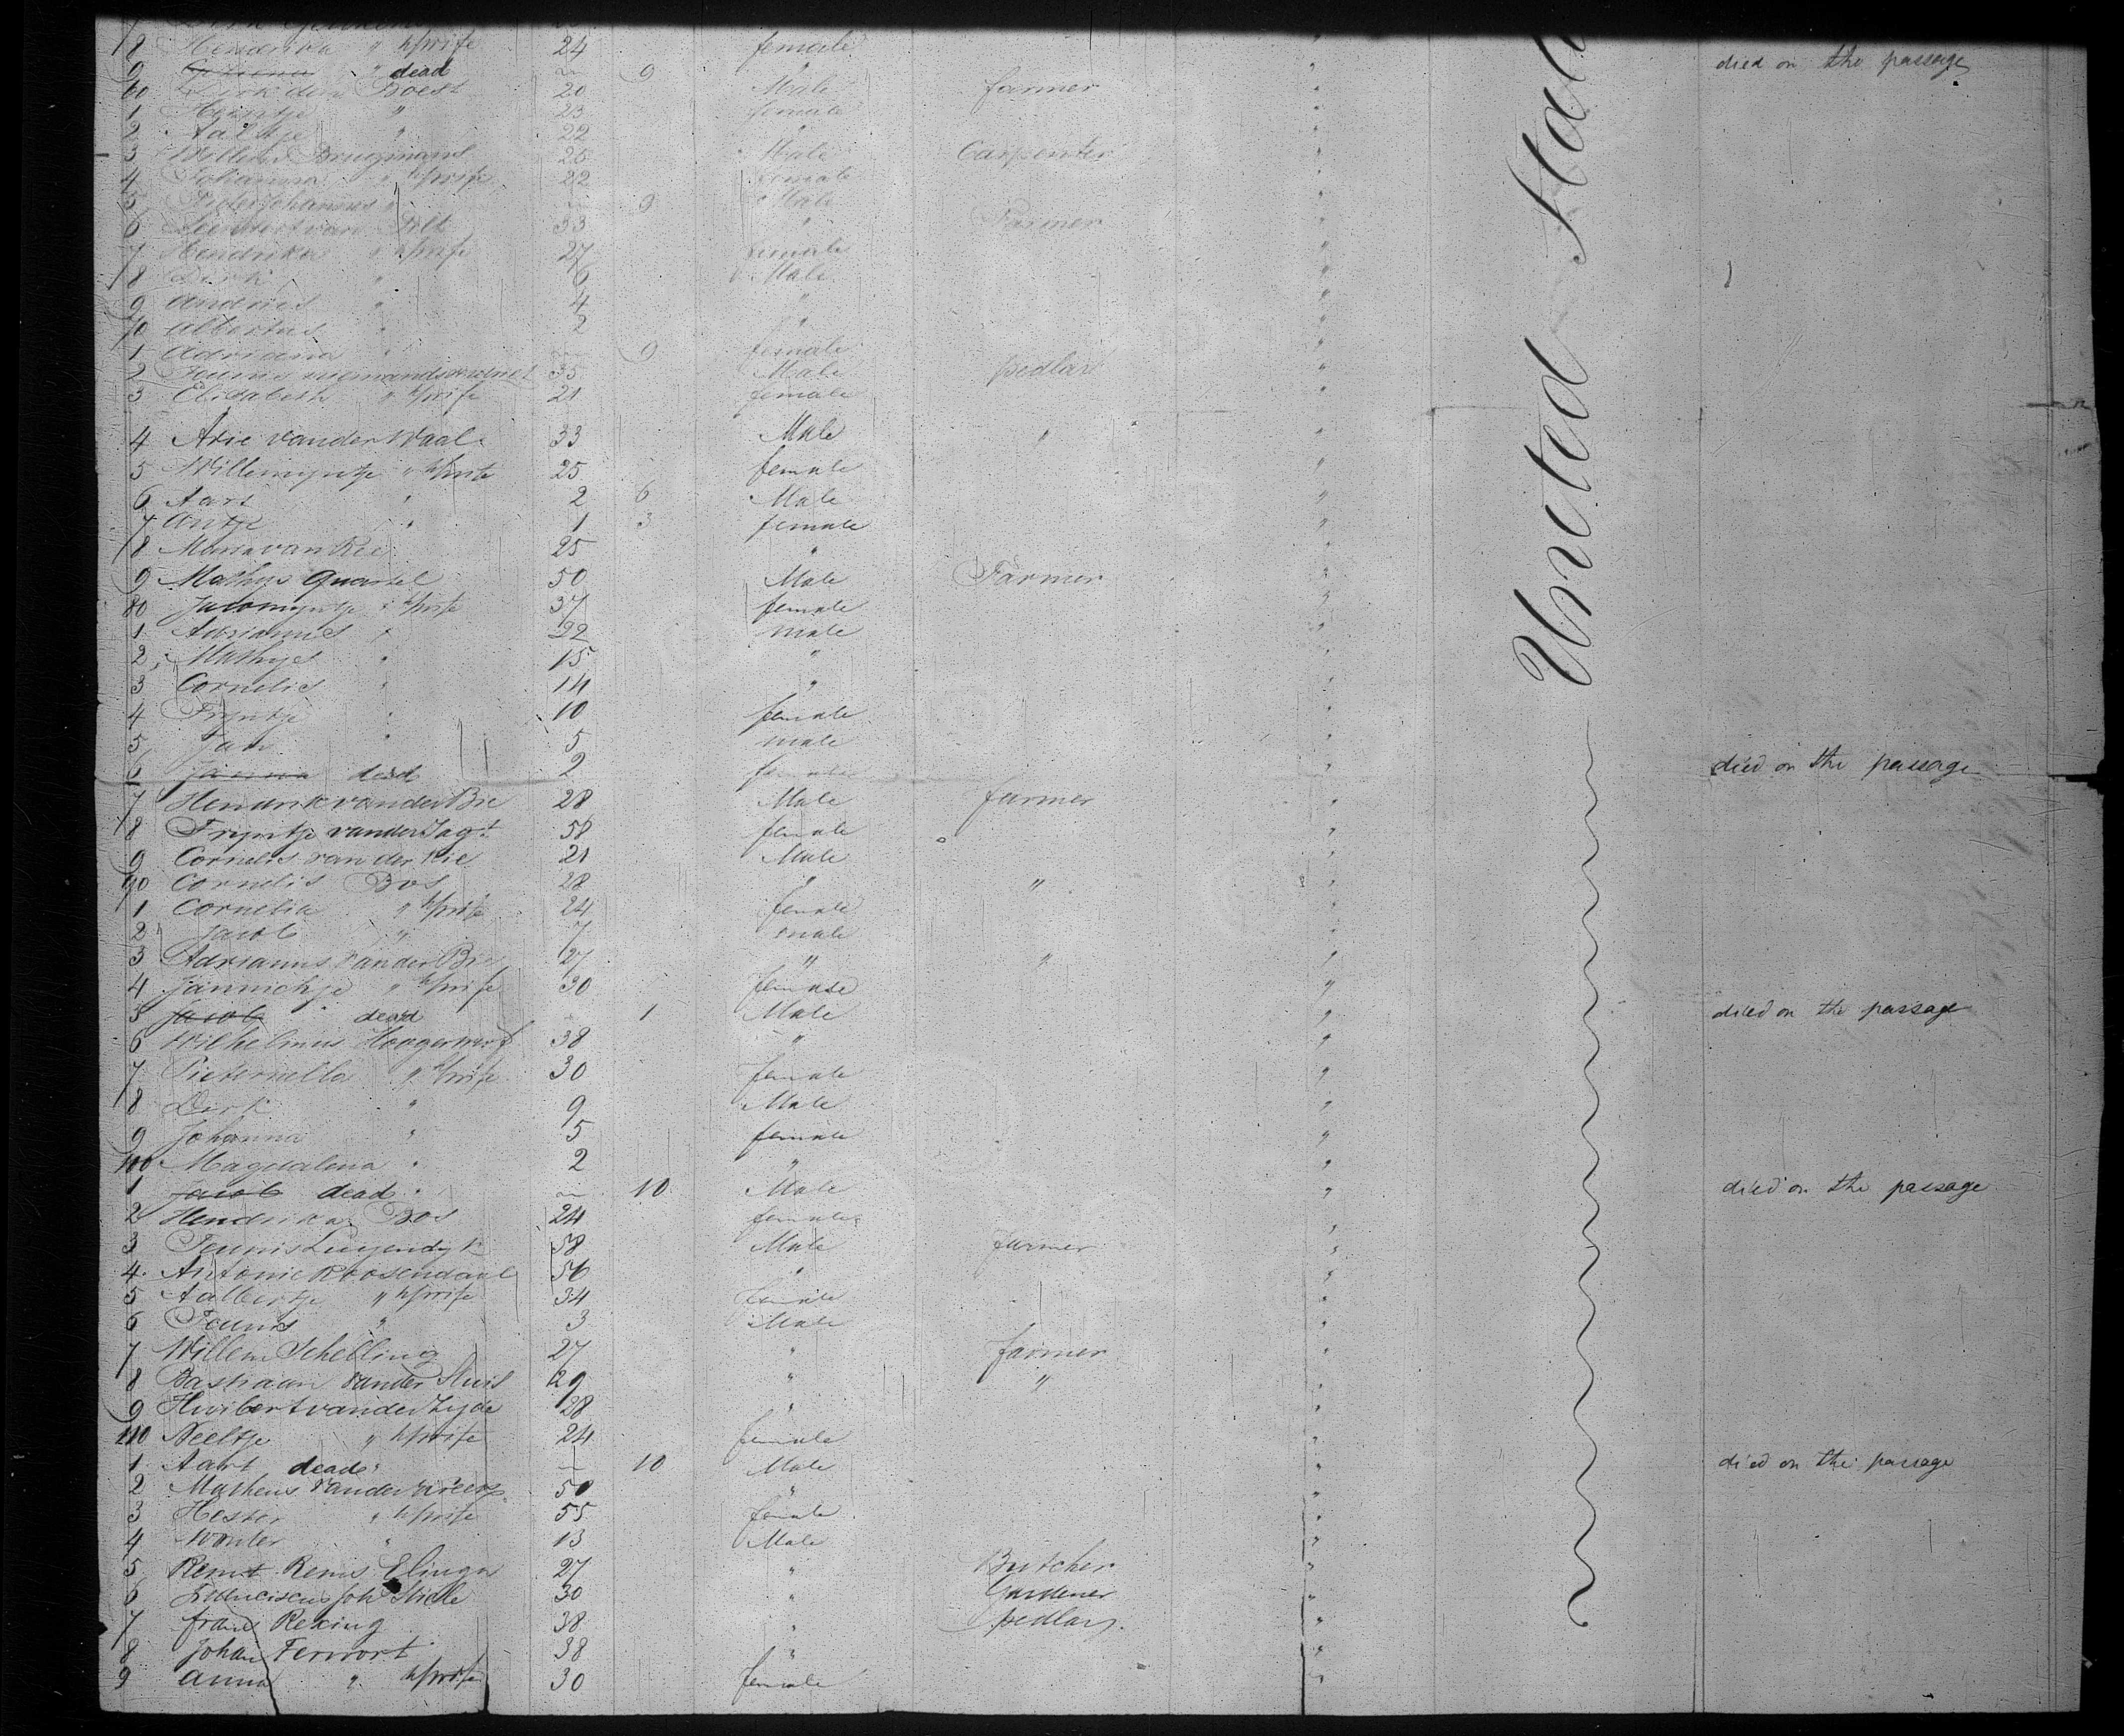 8 Hendrika " h/wife 24 female "
9 dead 9 " " died on the passage
60 Dirk den Boest 20 Male farmer "
1 " 23 female "
2 Aaltje " 22 " "
3 Willem Brugmans 26 Male Carpenter "
4 Johanna " h/wife 22 female "
5 Johannes " 9 Male "
6 Leendert van Pelt 33 " Farmer "
7 Hendrika " h/wife 27 female "
8 Dirk " 6 Male "
9 Andries " 4 " "
70 Albertus " 2 " "
1 Adriana " 9 female "
2 Teunis 35 Male pedlar "
3 Elizabeth " h/wife 21 female "
4 Arie van der Waal 33 Male " "
5 Willemyntje " h/wife 25 female "
6 Aart " 2 6 Male "
7 Antje " 1 3 female "
8 Maria van Ree 25 " "
9 Mathys Quartel 50 Male Farmer "
80 Jacomyntje " h/wife 37 female "
1 Adrianus " 22 male "
2 Mathys " 15 " "
3 Cornelis " 14 " "
4 Tryntje " 10 female "
5 Jan " 5 male "
6 dead 2 female " died on the passage
7 Hendrik van der Bie 28 Male farmer "
8 Tryntje van der Jagt 58 female "
9 Cornelis van der Bie 21 Male "
90 Cornelis Bos 28 " " "
1 Cornelia " h/wife 24 female "
2 Jacob " 7 male "
3 Adrianus van der Bie 27 " " "
4 Jannichje " h/wife 30 female "
5 Jacob " dead 1 Male " died on the passage
6 Wilhelmus Hoogerwerf 38 " "
7 Pieternella " h/wife 30 female "
8 Dirk " 9 Male "
9 Johanna " 5 female "
100 Magdalena " 2 " "
1 Jacob dead " 10 Male " died on the passage
2 Hendrika Bos 24 female "
3 Teunis Luyendyk 58 Male farmer "
4 Antonie Roosendaal 56 " "
5 Aalbertje " h/wife 34 female "
6 Teunis " 3 Male "
7 Willem Schelling 27 " farmer "
8 Bastiaan van der Sluis 29 " " "
9 Huibert van der Zyde 28 " "
110 Neeltje " h/wife 24 female "
1 Aart dead " 10 Male " died on the passage
2 Matheus van der 50 " "
3 Hester " h/wife 55 female "
4 Wouter " 13 Male "
5 Remt Rems Elinga 27 " Butcher "
6 Franciscus Joh 30 " Gardener "
7 frans Reking 38 " pedlar "
8 Johan Ferwort 38 " "
9 Anna " h/wife 30 female "
United Stat